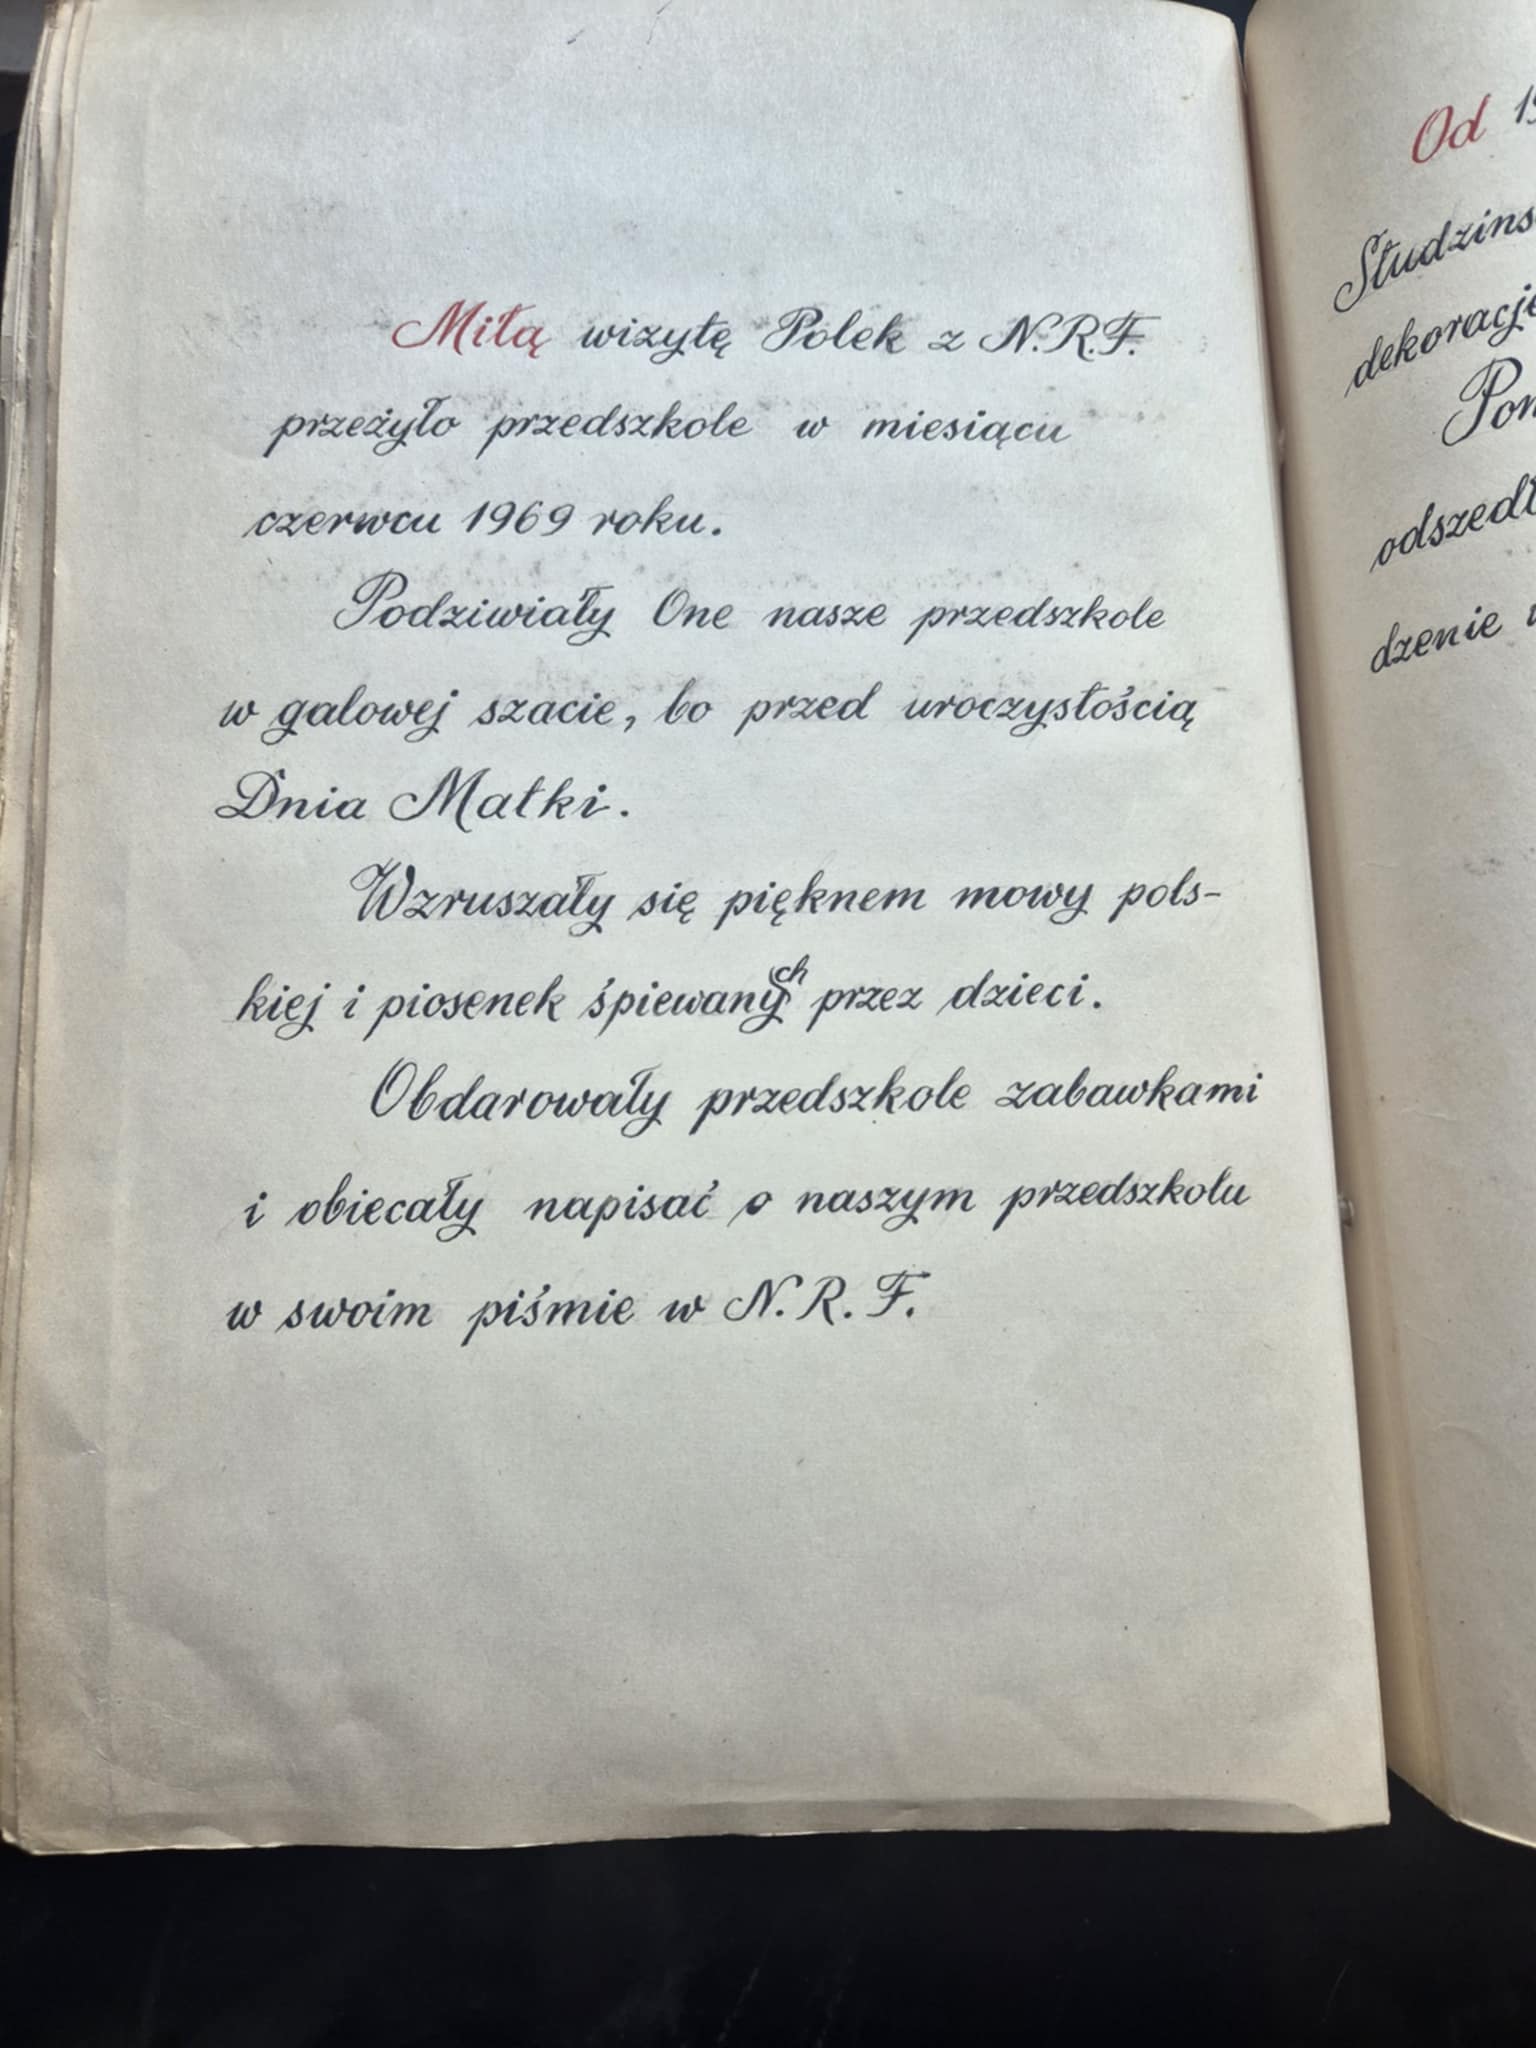 Miłą wizytę Polek z N.R.F.
przeżyło przedszkole w miesiącu
czerwcu 1969 roku.
Podziwiały One nasze przedszkole
w galowej szacie, bo przed uroczystością
Dnia Matki.
Wzruszały się pięknem mowy pols-
kiej i piosenek śpiewanych przez dzieci.
Obdarowały przedszkole zabawkami
i obiecały napisać o naszym przedszkolu
w swoim piśmie w N. R. F.
Od
dekoracje
dzenie